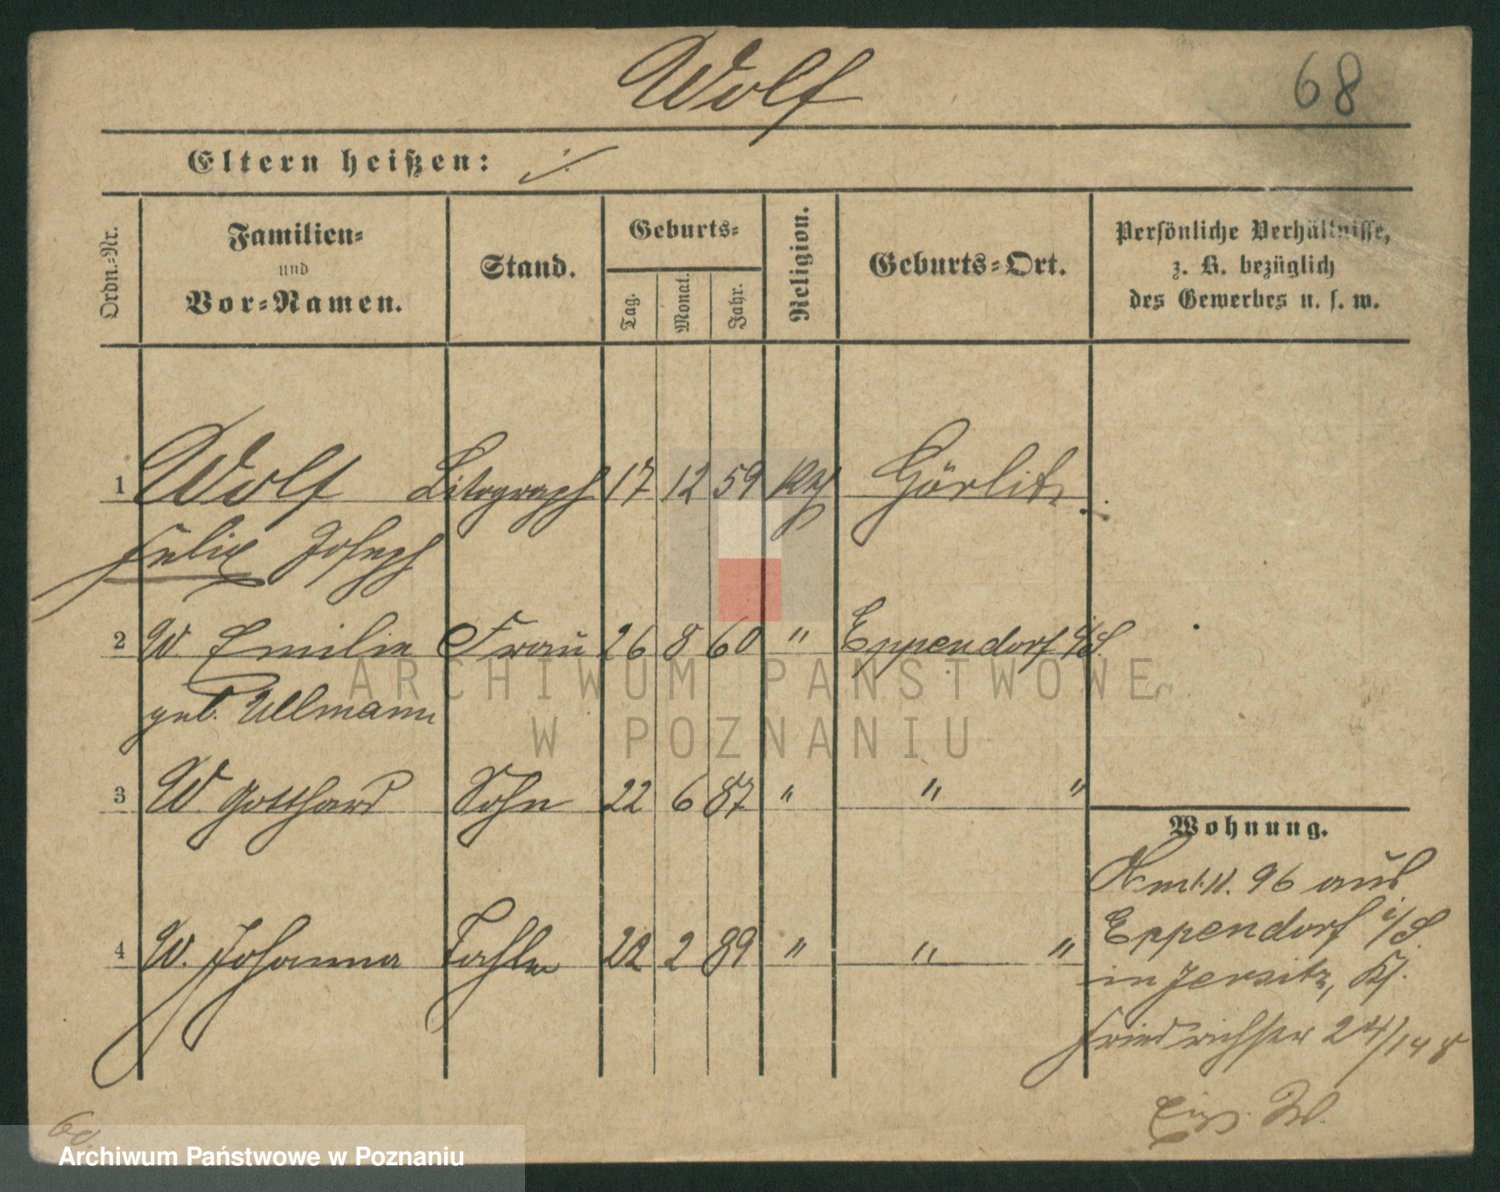 Wolf
68
Eltern heißen: ./.
Ordn.-Nr.
Familien-
und
Vor-Namen.
Stand.
Geburts-
Tag.
Monat.
Jahr.
Religion.
Geburts-Ort.
Persönliche Verhältnisse,
z. B. bezüglich
des Gewerbes u. s. w.
1 Wolf Litograph 17 12 59 Görlitz
Felix Joseph
2 W Emilie Frau 26 8 60 " Eppendorf i/S
geb. Ullmann
3 W Gotthard Sohn 22 6 87 " " "
4 W. Johanna 22 2 89 " " "
Wohnung.
96 aus
Eppendorf i/S.
in Jersitz,
24/
ARCHIWUM PAŃSTWOWE
W POZNANIU
Archiwum Państwowe w Poznaniu